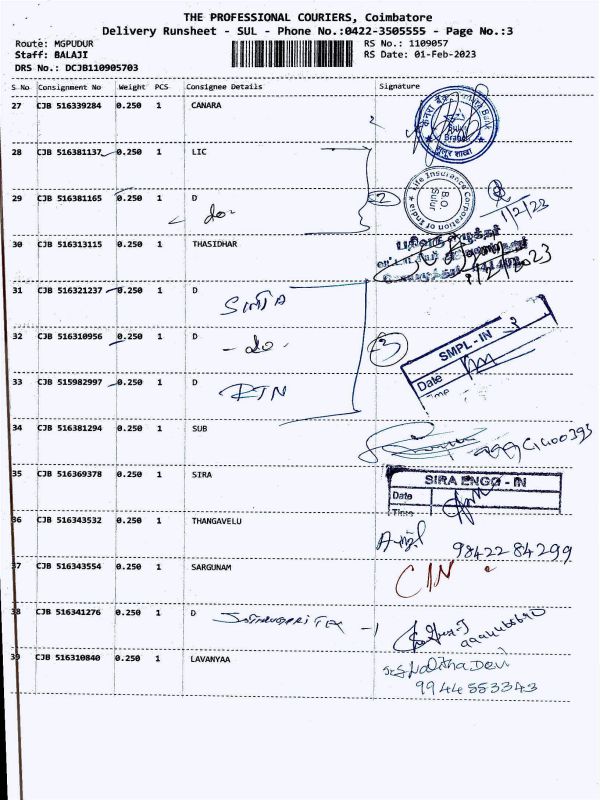 THE PROFESSIONAL COURIERS, Coimbatore
Delivery Runsheet - SUL - Phone No.:0422-3505555 - Page No.:3
Route: MGPUDUR
Staff: BALAJI
DRS No.: DCJB110905703
RS No.: 1109057
RS Date: 01-Feb-2023
S No Consignment No Weight PCS Consignee Details Signature
27 CJB 516339284 0.250 1 CANARA
28 CJB 516381137 0.250 1 LIC
29 CJB 516381165 0.250 1 D
do- 2
Life Insurance Corporation of India
B.O. Sulur
1/2/23
30 CJB 516313115 0.250 1 THASIDHAR
1/2/2023
31 CJB 516321237 0.250 1 D
32 CJB 516310956 0.250 1 D
- do - 3
SMPL - IN
Date
Time
33 CJB 515982997 0.250 1 D
34 CJB 516381294 0.250 1 SUB
35 CJB 516369378 0.250 1 SIRA
SIRA ENGG - IN
Date
Time
36 CJB 516343532 0.250 1 THANGAVELU
9842284299
37 CJB 516343554 0.250 1 SARGUNAM
38 CJB 516341276 0.250 1 D
39 CJB 516310840 0.250 1 LAVANYAA
9944553343